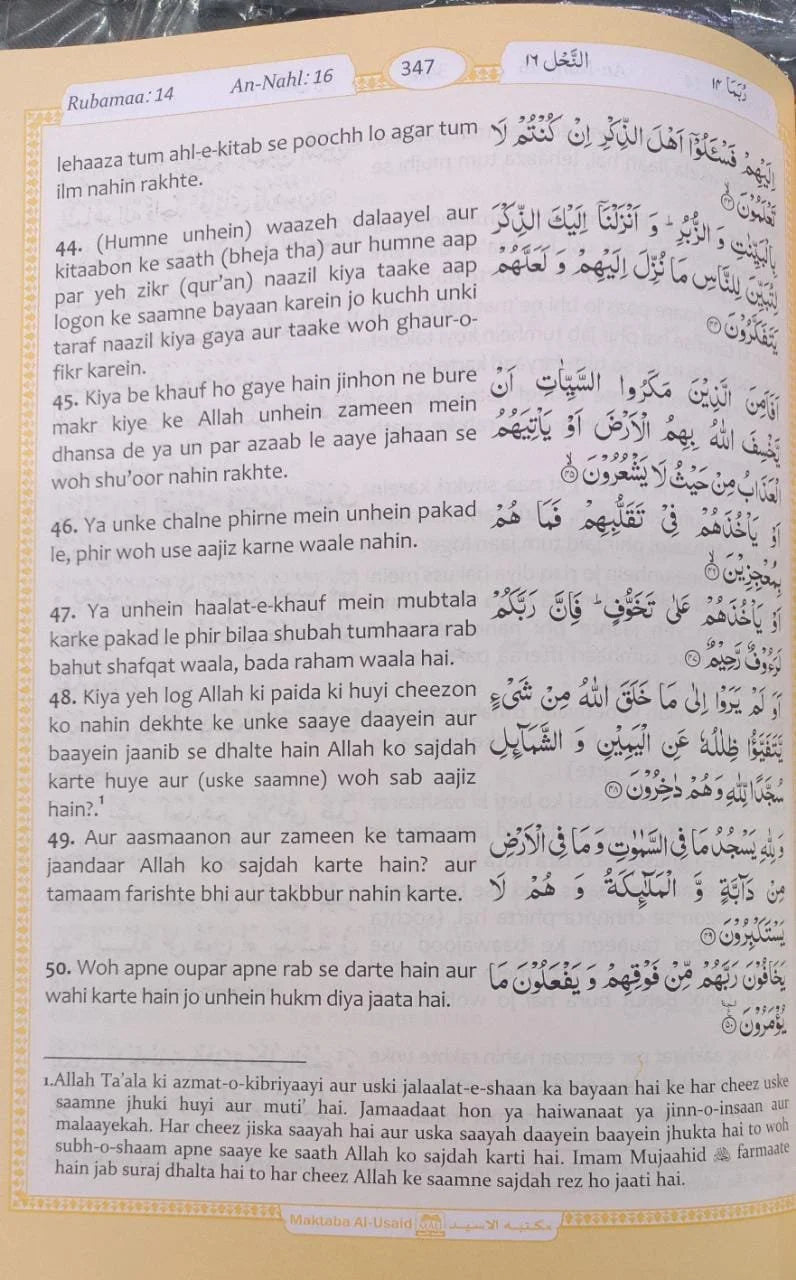 Rubamaa: 14
An-Nahl: 16
347
النَّحْل ١٦
رُبَمَا ١٤
lehaaza tum ahl-e-kitab se poochh lo agar tum
ilm nahin rakhte.
44. (Humne unhein) waazeh dalaayel aur
kitaabon ke saath (bheja tha) aur humne aap
par yeh zikr (qur’an) naazil kiya taake aap
logon ke saamne bayaan karein jo kuchh unki
taraf naazil kiya gaya aur taake woh ghaur-o-
fikr karein.
45. Kiya be khauf ho gaye hain jinhon ne bure
makr kiye ke Allah unhein zameen mein
dhansa de ya un par azaab le aaye jahaan se
woh shu’oor nahin rakhte.
46. Ya unke chalne phirne mein unhein pakad
le, phir woh use aajiz karne waale nahin.
47. Ya unhein haalat-e-khauf mein mubtala
karke pakad le phir bilaa shubah tumhaara rab
bahut shafqat waala, bada raham waala hai.
48. Kiya yeh log Allah ki paida ki huyi cheezon
ko nahin dekhte ke unke saaye daayein aur
baayein jaanib se dhalte hain Allah ko sajdah
karte huye aur (uske saamne) woh sab aajiz
hain?.¹
49. Aur aasmaanon aur zameen ke tamaam
jaandaar Allah ko sajdah karte hain? aur
tamaam farishte bhi aur takbbur nahin karte.
50. Woh apne oupar apne rab se darte hain aur
wahi karte hain jo unhein hukm diya jaata hai.
اِلَيْهِمْ فَسْـَٔلُوْٓا اَهْلَ الذِّكْرِ اِنْ كُنْتُمْ لَا
تَعْلَمُوْنَ ۙ‏﴿۴۳﴾
بِالْبَيِّنٰتِ وَ الزُّبُرِ ؕ وَ اَنْزَلْنَاۤ اِلَيْكَ الذِّكْرَ
لِتُبَيِّنَ لِلنَّاسِ مَا نُزِّلَ اِلَيْهِمْ وَ لَعَلَّهُمْ
يَتَفَكَّرُوْنَ ﴿۴۴﴾
اَفَاَمِنَ الَّذِيْنَ مَكَرُوا السَّيِّاٰتِ اَنْ
يَّخْسِفَ اللّٰهُ بِهِمُ الْاَرْضَ اَوْ يَاْتِيَهُمُ
الْعَذَابُ مِنْ حَيْثُ لَا يَشْعُرُوْنَ ۙ﴿۴۵﴾
اَوْ يَاْخُذَهُمْ فِيْ تَقَلُّبِهِمْ فَمَا هُمْ
بِمُعْجِزِيْنَ ۙ﴿۴۶﴾
اَوْ يَاْخُذَهُمْ عَلٰى تَخَوُّفٍ ؕ فَاِنَّ رَبَّكُمْ
لَرَءُوْفٌ رَّحِيْمٌ ﴿۴۷﴾
اَوَ لَمْ يَرَوْا اِلٰى مَا خَلَقَ اللّٰهُ مِنْ شَيْءٍ
يَّتَفَيَّؤُا ظِلٰلُهٗ عَنِ الْيَمِيْنِ وَ الشَّمَآىِٕلِ
سُجَّدًا لِّلّٰهِ وَ هُمْ دٰخِرُوْنَ ﴿۴۸﴾
وَ لِلّٰهِ يَسْجُدُ مَا فِي السَّمٰوٰتِ وَ مَا فِي الْاَرْضِ
مِنْ دَآبَّةٍ وَّ الْمَلٰٓىِٕكَةُ وَ هُمْ لَا
يَسْتَكْبِرُوْنَ ﴿۴۹﴾
يَخَافُوْنَ رَبَّهُمْ مِّنْ فَوْقِهِمْ وَ يَفْعَلُوْنَ مَا
يُؤْمَرُوْنَ ﴿۵۰﴾
1.Allah Ta’ala ki azmat-o-kibriyaayi aur uski jalaalat-e-shaan ka bayaan hai ke har cheez uske
saamne jhuki huyi aur muti’ hai. Jamaadaat hon ya haiwanaat ya jinn-o-insaan aur
malaayekah. Har cheez jiska saayah hai aur uska saayah daayein baayein jhukta hai to woh
subh-o-shaam apne saaye ke saath Allah ko sajdah karti hai. Imam Mujaahid farmaate
hain jab suraj dhalta hai to har cheez Allah ke saamne sajdah rez ho jaati hai.
Maktaba Al-Usaid
مكتبه الاسيد